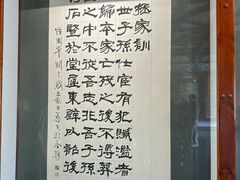 拯家訓
世子孫仕宦有犯贓濫者
歸本家亡歿之後不得葬
之中不從吾志非吾子孫
石竪於堂屋東壁以詔後